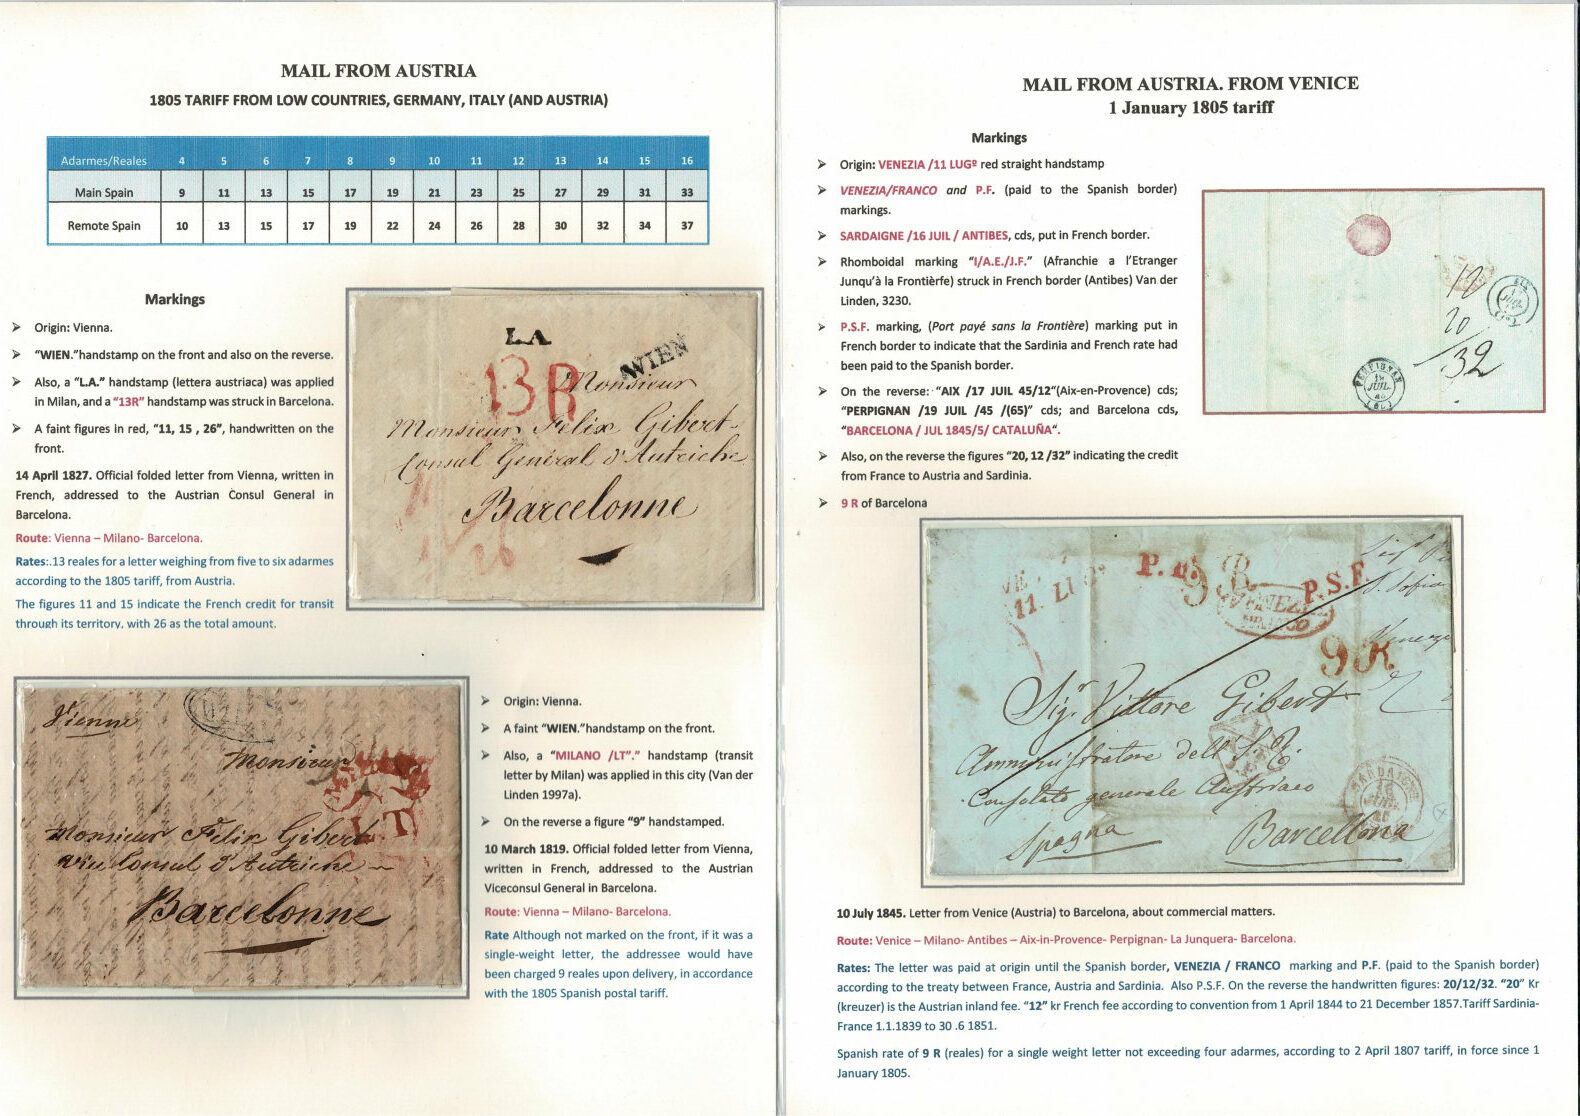 MAIL FROM AUSTRIA
1805 TARIFF FROM LOW COUNTRIES, GERMANY, ITALY (AND AUSTRIA)
Adarmes/Reales 4 5 6 7 8 9 10 11 12 13 14 15 16
Main Spain 9 11 13 15 17 19 21 23 25 27 29 31 33
Remote Spain 10 13 15 17 19 22 24 26 28 30 32 34 37
Markings
➢ Origin: Vienna.
➢ “WIEN.”handstamp on the front and also on the reverse.
➢ Also, a “L.A.” handstamp (lettera austriaca) was applied
in Milan, and a “13R” handstamp was struck in Barcelona.
➢ A faint figures in red, “11, 15 , 26”, handwritten on the
front.
14 April 1827. Official folded letter from Vienna, written in
French, addressed to the Austrian Consul General in
Barcelona.
Route: Vienna – Milano- Barcelona.
Rates:.13 reales for a letter weighing from five to six adarmes
according to the 1805 tariff, from Austria.
The figures 11 and 15 indicate the French credit for transit
through its territory, with 26 as the total amount.
L.A.
13R
WIEN
Monsieur
Monsieur Felix Gibert
Consul Général d'Autriche
Barcelonne
26
Vienne
Monsieur
LT
Monsieur Felix Gibert
Vice Consul d'Autriche
Barcelonne
➢ Origin: Vienna.
➢ A faint “WIEN.”handstamp on the front.
➢ Also, a “MILANO /LT”.” handstamp (transit
letter by Milan) was applied in this city (Van der
Linden 1997a).
➢ On the reverse a figure “9” handstamped.
10 March 1819. Official folded letter from Vienna,
written in French, addressed to the Austrian
Viceconsul General in Barcelona.
Route: Vienna – Milano- Barcelona.
Rate Although not marked on the front, if it was a
single-weight letter, the addressee would have
been charged 9 reales upon delivery, in accordance
with the 1805 Spanish postal tariff.
MAIL FROM AUSTRIA. FROM VENICE
1 January 1805 tariff
Markings
➢ Origin: VENEZIA /11 LUGº red straight handstamp
➢ VENEZIA/FRANCO and P.F. (paid to the Spanish border)
markings.
➢ SARDAIGNE /16 JUIL / ANTIBES, cds, put in French border.
➢ Rhomboidal marking “I/A.E./J.F.” (Afranchie a l’Etranger
Junqu’à la Frontièrfe) struck in French border (Antibes) Van der
Linden, 3230.
➢ P.S.F. marking, (Port payé sans la Frontière) marking put in
French border to indicate that the Sardinia and French rate had
been paid to the Spanish border.
➢ On the reverse: “AIX /17 JUIL 45/12“(Aix-en-Provence) cds;
“PERPIGNAN /19 JUIL /45 /(65)” cds; and Barcelona cds,
“BARCELONA / JUL 1845/5/ CATALUÑA“.
➢ Also, on the reverse the figures “20, 12 /32” indicating the credit
from France to Austria and Sardinia.
➢ 9 R of Barcelona
AIX
JUIL
20
32
PERPIGNAN
JUIL
11. LU
P.
P.S.F.
VENEZIA
9R
Sigr. Vittore Gibert
Amministratore dell' I. R.
Consolato generale Austriaco
Spagna
Barcellona
SARDAIGNE
16
10 July 1845. Letter from Venice (Austria) to Barcelona, about commercial matters.
Route: Venice – Milano- Antibes – Aix-in-Provence- Perpignan- La Junquera- Barcelona.
Rates: The letter was paid at origin until the Spanish border, VENEZIA / FRANCO marking and P.F. (paid to the Spanish border)
according to the treaty between France, Austria and Sardinia. Also P.S.F. On the reverse the handwritten figures: 20/12/32. “20” Kr
(kreuzer) is the Austrian inland fee. “12” kr French fee according to convention from 1 April 1844 to 21 December 1857.Tariff Sardinia-
France 1.1.1839 to 30 .6 1851.
Spanish rate of 9 R (reales) for a single weight letter not exceeding four adarmes, according to 2 April 1807 tariff, in force since 1
January 1805.